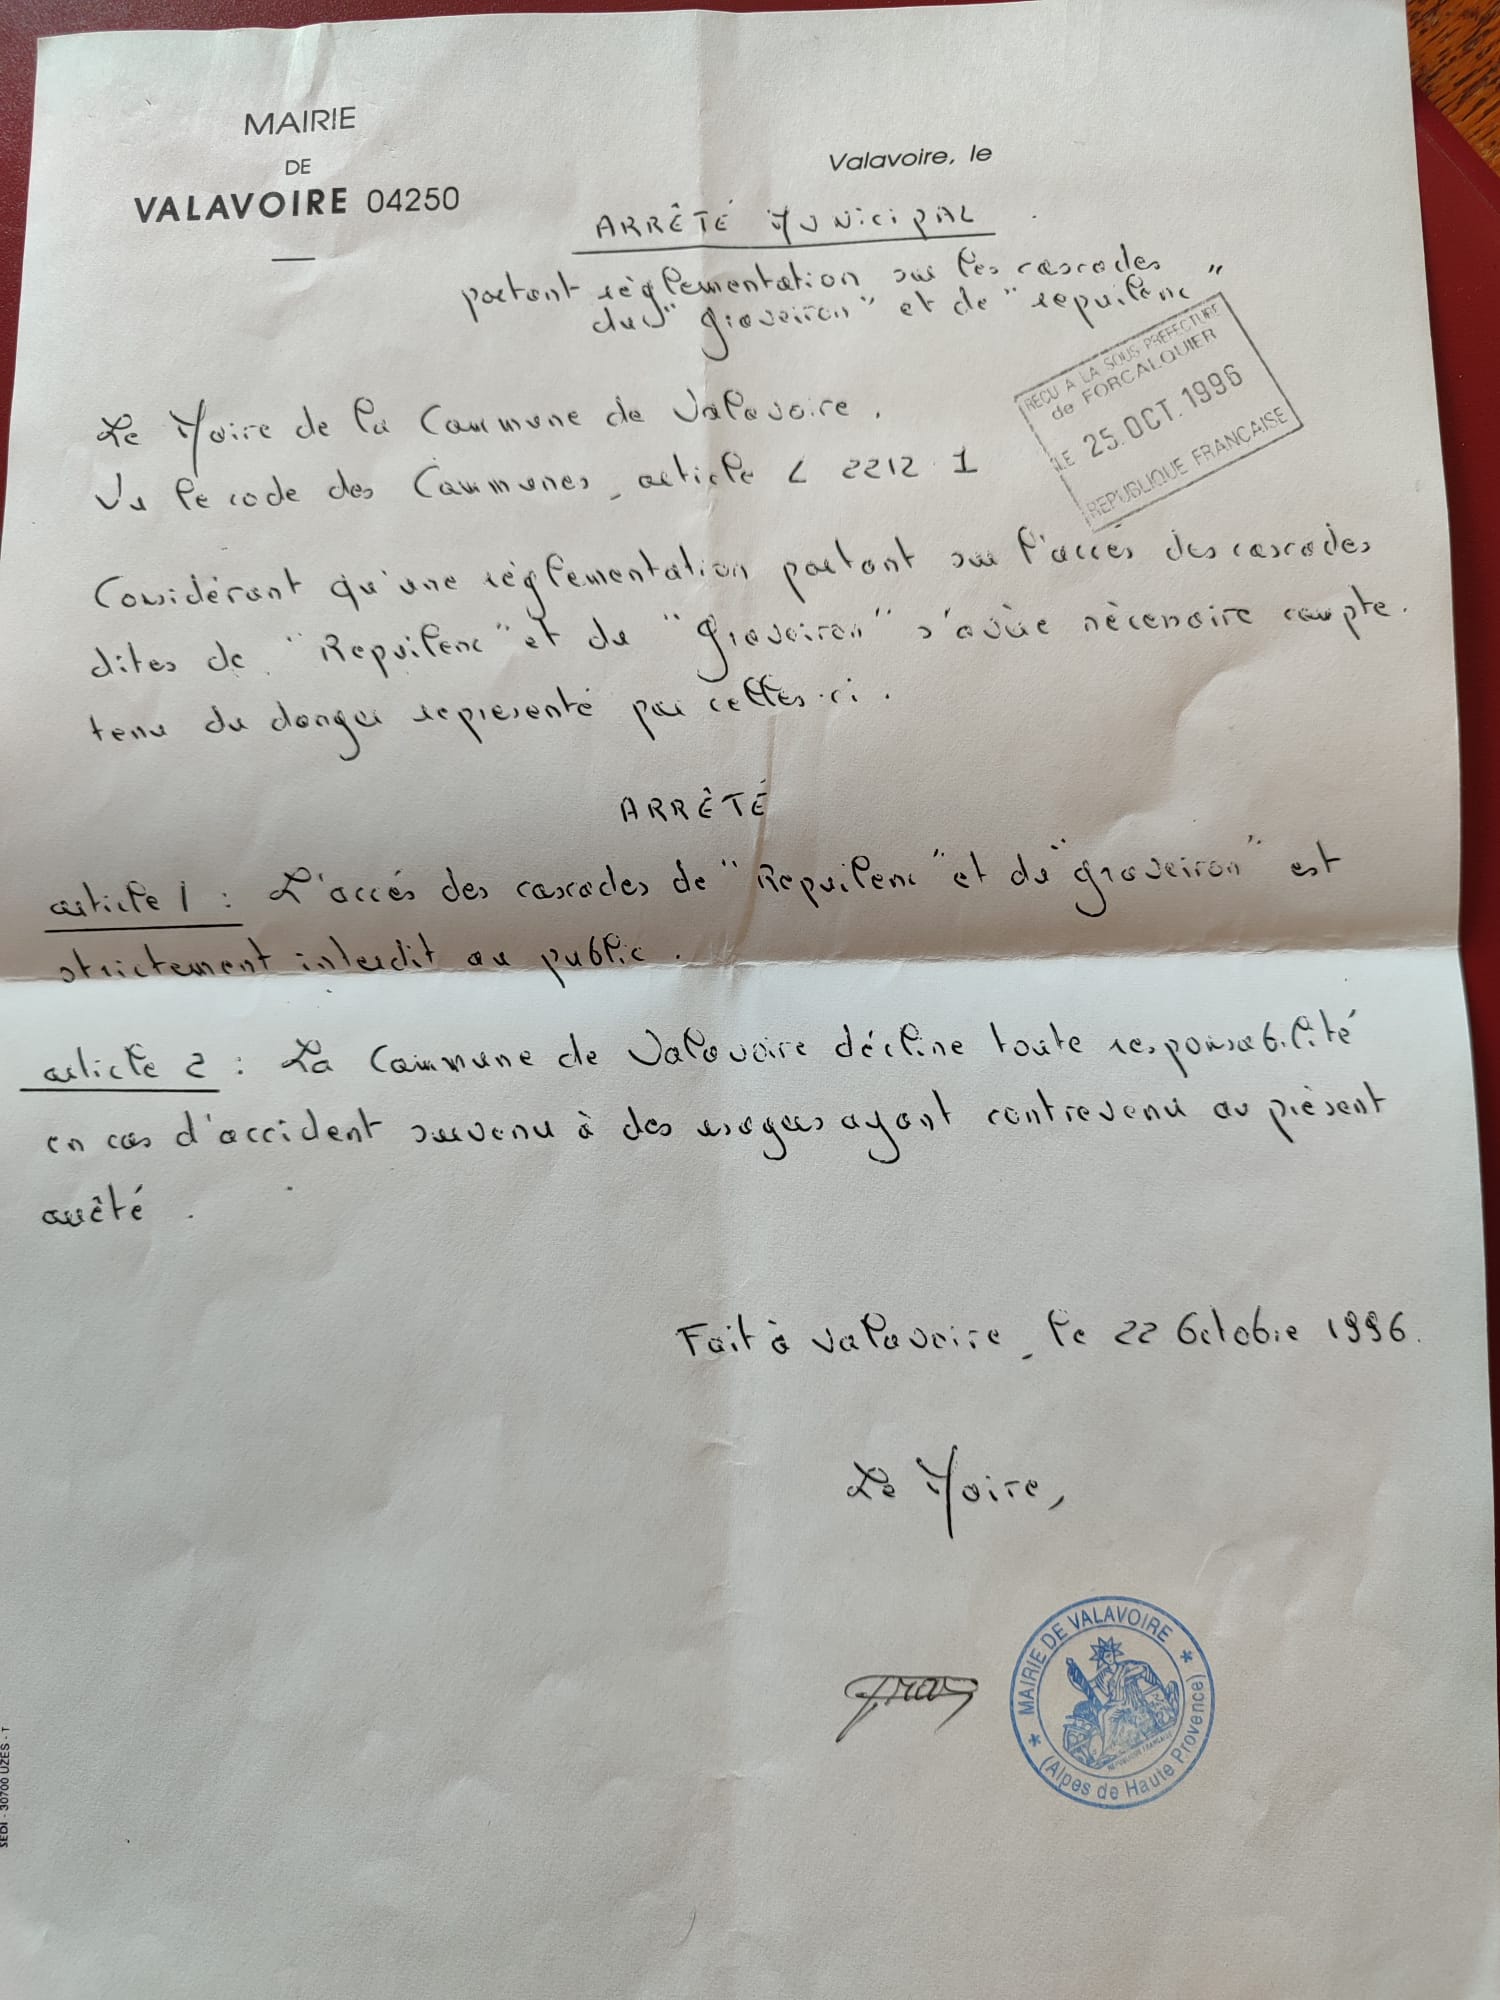 MAIRIE
DE
VALAVOIRE 04250
Valavoire, le
ARRÊTÉ MUNICIPAL
portant règlementation sur les cascades
du "graveiron" et de "repuilenc"
REÇU A LA SOUS-PREFECTURE
de FORCALQUIER
LE 25. OCT. 1996
REPUBLIQUE FRANÇAISE
Le Maire de la Commune de Valavoire.
Vu le code des Communes, article L 2212.1
Considérant qu'une règlementation portant sur l'accès des cascades
dites de "Repuilenc" et du "graveiron" s'avère nècessaire compte.
tenu du danger représenté par celles-ci.
ARRÊTÉ
article 1 : L'accés des cascades de "Repuilenc" et du "graveiron" est
strictement interdit au public.
article 2 : La Commune de Valavoire décline toute responsabilité
en cas d'accident survenu à des usagers ayant contrevenu au présent
arrêté.
Fait à Valavoire, le 22 Octobre 1996.
Le Maire,
MAIRIE DE VALAVOIRE
REPUBLIQUE FRANÇAISE
(Alpes de Haute Provence)
SEDI - 30700 UZES - T